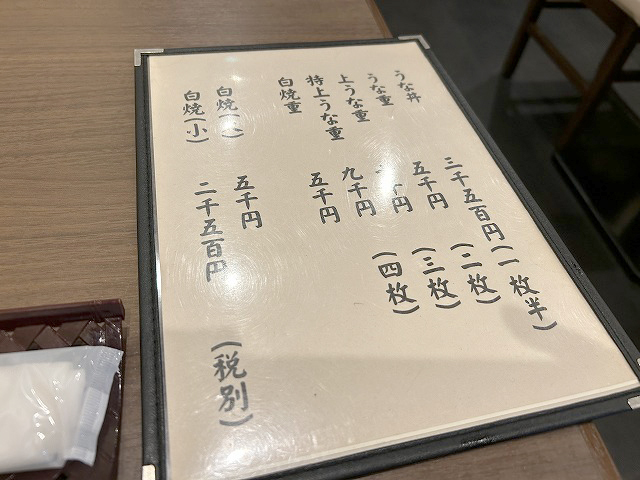 うな丼 三千五百円(一枚半)
うな重 五千円(二枚)
上うな重 千円(三枚)
特上うな重 九千円(四枚)
白焼重 五千円
白焼( ) 五千円
白焼(小) 二千五百円
(税別)